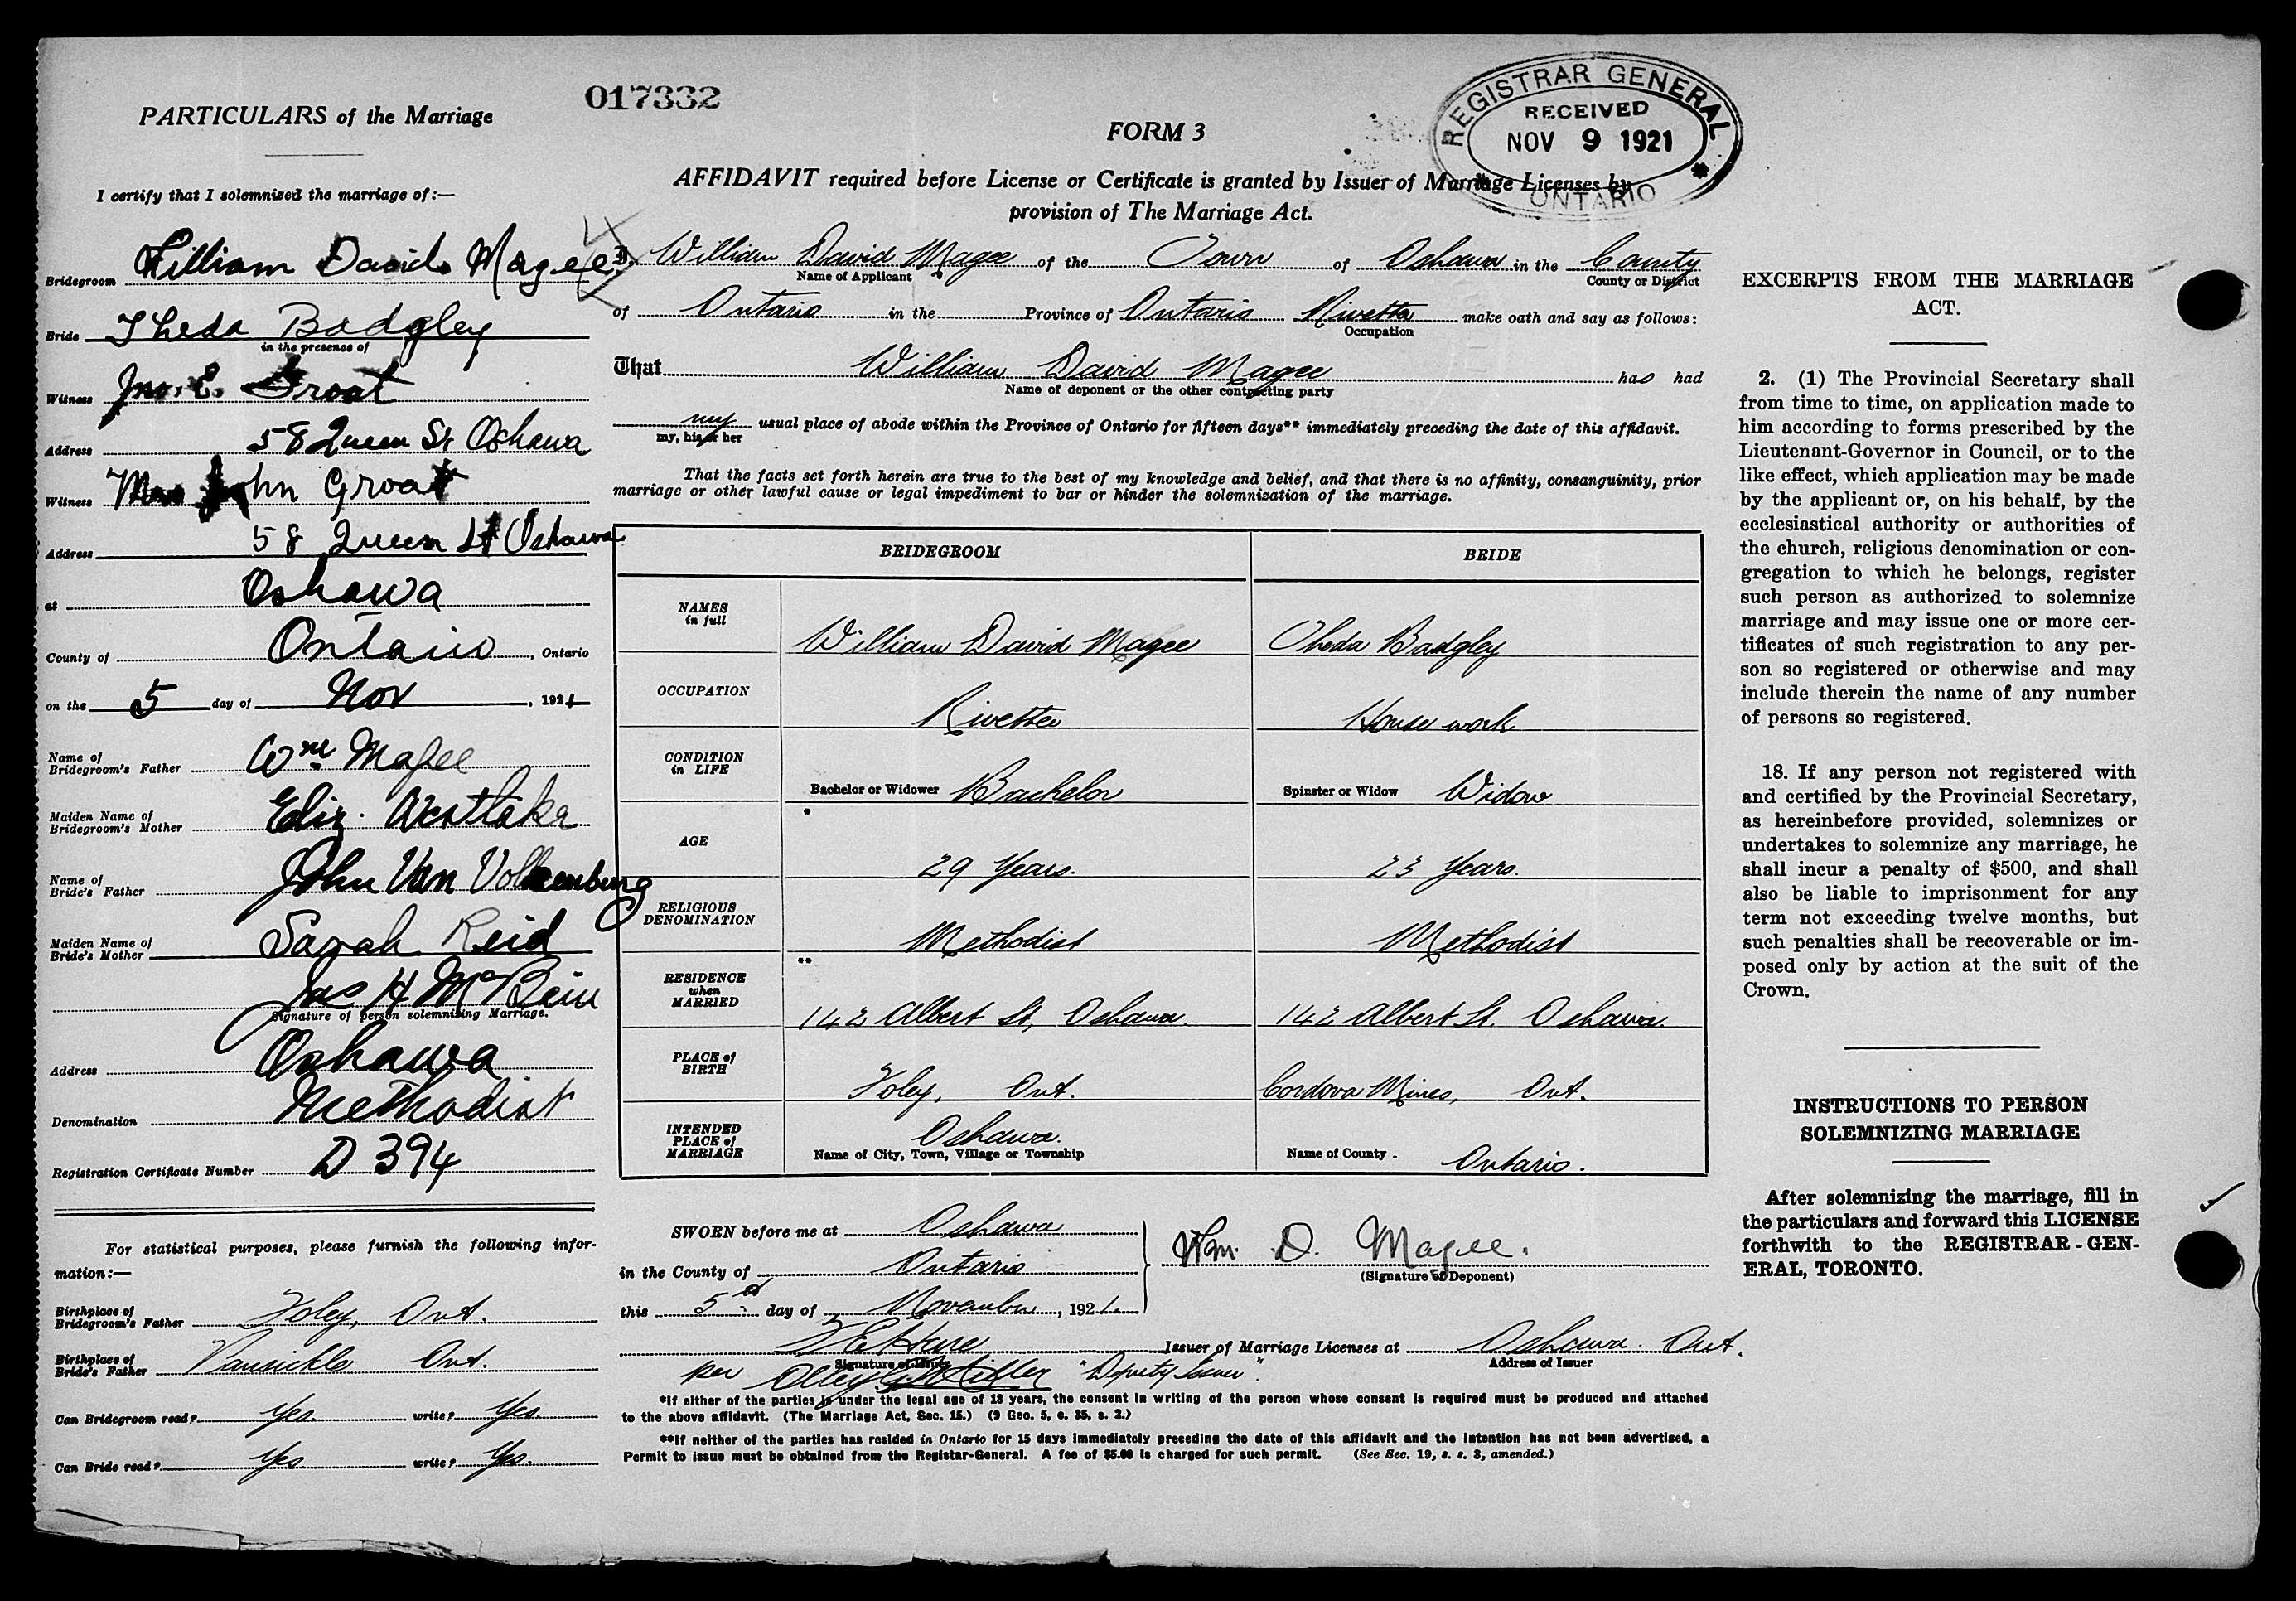 PARTICULARS of the Marriage
I certify that I solemnized the marriage of:—
Bridegroom William David Magee
Bride Theda Badgley
in the presence of
Witness Jno. E. Groat
Address 58 Queen St Oshawa
Witness Mrs John Groat
Address 58 Queen St Oshawa
at Oshawa
County of Ontario, Ontario
on the 5 day of Nov, 1921
Name of
Bridegroom's Father Wm Magee
Maiden Name of
Bridegroom's Mother Eliz. Westlake
Name of
Bride's Father John Van Volkenburg
Maiden Name of
Bride's Mother Sarah Reid
Jas H McBain
Signature of person solemnizing Marriage.
Address Oshawa
Denomination Methodist
Registration Certificate Number D 394
For statistical purposes, please furnish the following infor-
mation:—
Birthplace of
Bridegroom's Father Foley, Ont.
Birthplace of
Bride's Father Vansickle Ont.
Can Bridegroom read? Yes. write? Yes.
Can Bride read? Yes write? Yes.
017332
FORM 3
REGISTRAR GENERAL
RECEIVED
NOV 9 1921
ONTARIO
AFFIDAVIT required before License or Certificate is granted by Issuer of Marriage Licenses by
provision of The Marriage Act.
I William David Magee of the Town of Oshawa in the County
Name of Applicant County or District
of Ontario in the Province of Ontario Rivetter make oath and say as follows:
Occupation
That William David Magee has had
Name of deponent or the other contracting party
my usual place of abode within the Province of Ontario for fifteen days** immediately preceding the date of this affidavit.
my, his or her
That the facts set forth herein are true to the best of my knowledge and belief, and that there is no affinity, consanguinity, prior
marriage or other lawful cause or legal impediment to bar or hinder the solemnization of the marriage.
BRIDEGROOM BRIDE
NAMES
in full
William David Magee Theda Badgley
OCCUPATION
Rivetter House work
CONDITION
in LIFE
Bachelor or Widower Bachelor Spinster or Widow Widow
AGE
29 Years. 23 Years.
RELIGIOUS
DENOMINATION
Methodist Methodist
RESIDENCE
when
MARRIED
142 Albert St, Oshawa. 142 Albert St. Oshawa.
PLACE of
BIRTH
Foley, Ont. Cordova Mines, Ont.
INTENDED
PLACE of
MARRIAGE
Oshawa.
Name of City, Town, Village or Township Name of County. Ontario.
SWORN before me at Oshawa
in the County of Ontario
this 5th day of November, 1921.
Wm. D. Magee.
(Signature of Deponent)
Issuer of Marriage Licenses at Oshawa. Ont.
Signature of Issuer Address of Issuer
per "Deputy Issuer".
*If either of the parties is under the legal age of 18 years, the consent in writing of the person whose consent is required must be produced and attached
to the above affidavit. (The Marriage Act, Sec. 15.) (9 Geo. 5, c. 35, s. 2.)
**If neither of the parties has resided in Ontario for 15 days immediately preceding the date of this affidavit and the intention has not been advertised, a
Permit to issue must be obtained from the Registar-General. A fee of $5.00 is charged for such permit. (See Sec. 19, s. s. 3, amended.)
EXCERPTS FROM THE MARRIAGE
ACT.
2. (1) The Provincial Secretary shall
from time to time, on application made to
him according to forms prescribed by the
Lieutenant-Governor in Council, or to the
like effect, which application may be made
by the applicant or, on his behalf, by the
ecclesiastical authority or authorities of
the church, religious denomination or con-
gregation to which he belongs, register
such person as authorized to solemnize
marriage and may issue one or more cer-
tificates of such registration to any per-
son so registered or otherwise and may
include therein the name of any number
of persons so registered.
18. If any person not registered with
and certified by the Provincial Secretary,
as hereinbefore provided, solemnizes or
undertakes to solemnize any marriage, he
shall incur a penalty of $500, and shall
also be liable to imprisonment for any
term not exceeding twelve months, but
such penalties shall be recoverable or im-
posed only by action at the suit of the
Crown.
INSTRUCTIONS TO PERSON
SOLEMNIZING MARRIAGE
After solemnizing the marriage, fill in
the particulars and forward this LICENSE
forthwith to the REGISTRAR-GEN-
ERAL, TORONTO.